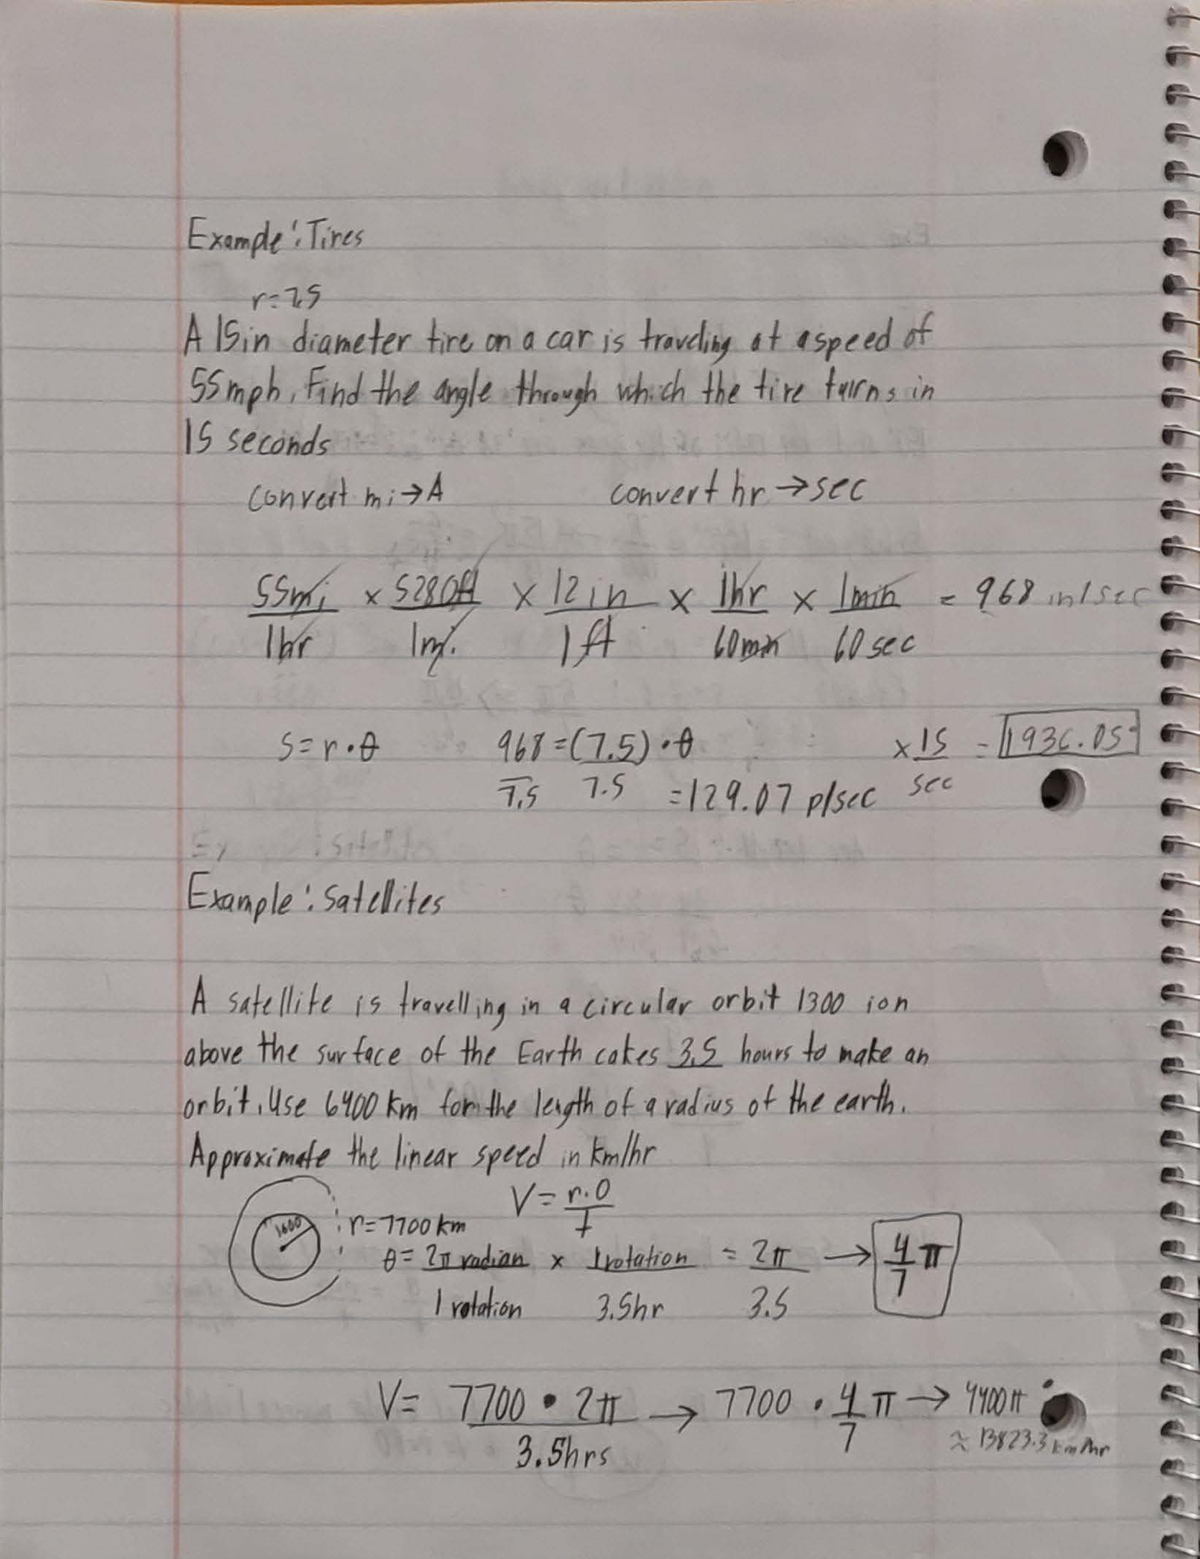 Example: Tires
r=7.5
A 15in diameter tire on a car is traveling at a speed of
55mph. Find the angle through which the tire turns in
15 seconds
convert mi→A convert hr →sec
55mi/1hr × 5280ft/1mi. × 12in/1ft × 1hr/60min × 1min/60sec = 968 in/sec
s=r•θ 968/7.5=(7.5)/7.5•θ =129.07 p/sec ×15/sec = 1936.05°
Example: Satellites
A satellite is travelling in a circular orbit 1300 ion
above the surface of the Earth cakes 3.5 hours to make an
orbit. Use 6400 km for the length of a radius of the earth.
Approximate the linear speed in km/hr
V= r.0/t
1600 r=7700 km
θ= 2π radian/1 rotation × 1rotation/3.5hr = 2π/3.5 → 4/7 π
V= 7700 • 2π/3.5hrs → 7700 • 4/7 π → 4400π
≈ 13823.3 km/hr